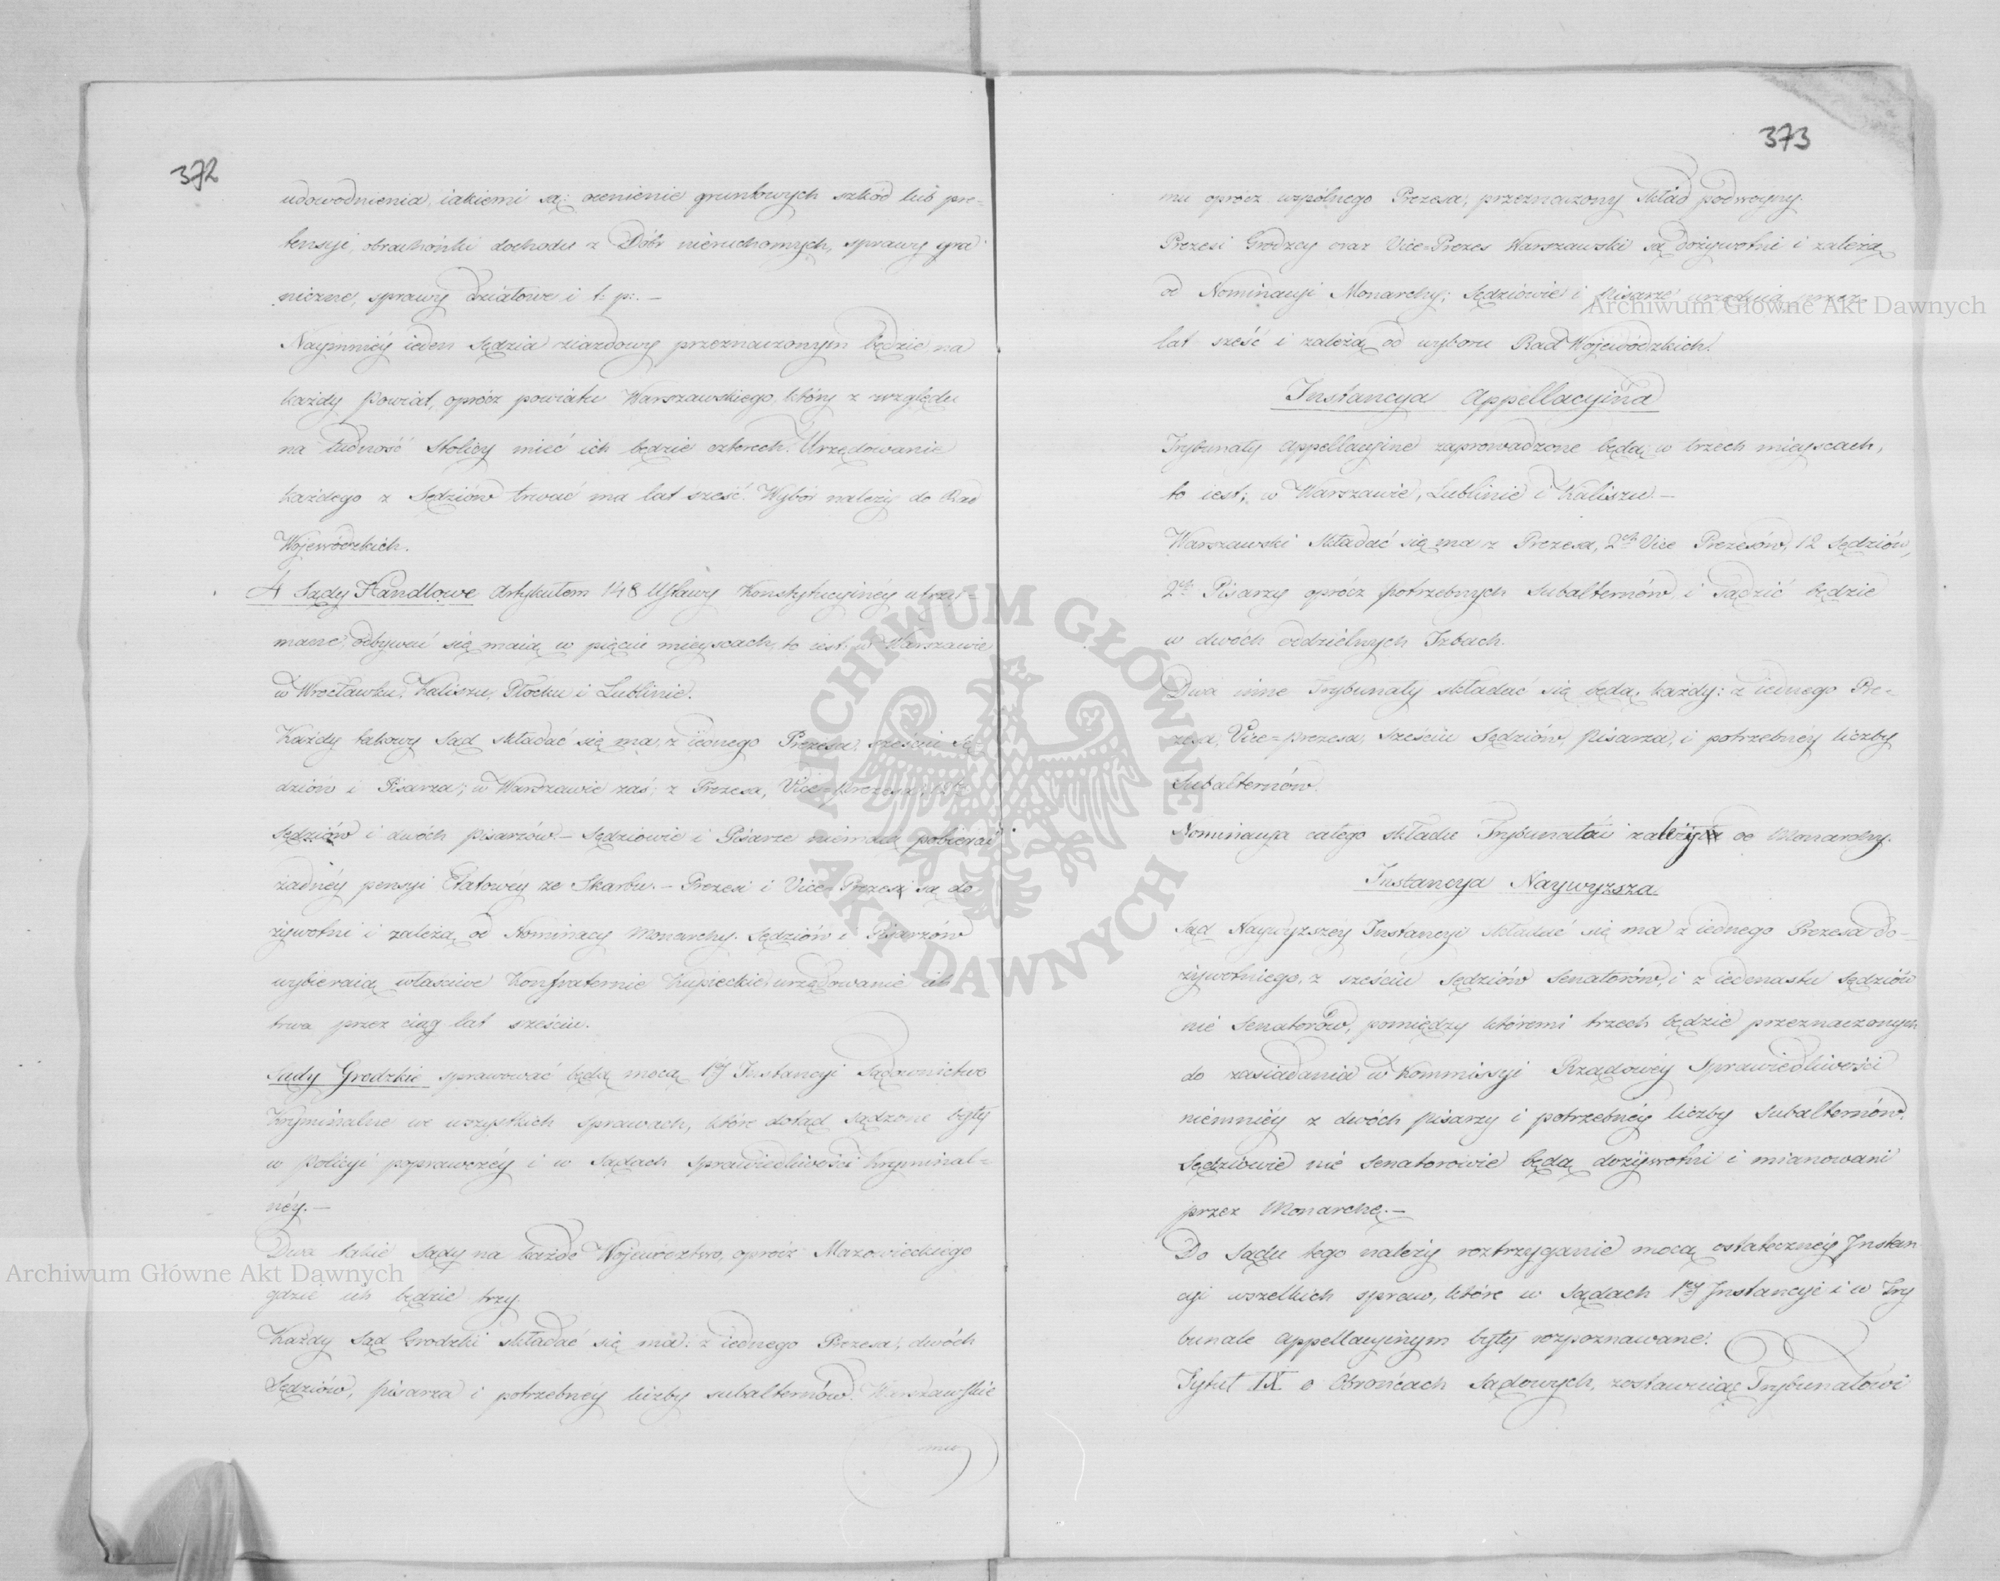 372
udowodnienia, iakiemi są: ocenienie gruntowych szkód lub pre-
tensyi, obrachónki dochodu z Dóbr nieruchomych, sprawy gra
niczne, sprawy działowe i t. p. –
Naymniéy ieden Sędzia ziazdowy przeznaczonym będzie na
każdy Powiat, oprócz powiatu Warszawskiego, który z względu
na ludność Stolicy mieć ich będzie czterech. Urzędowanie
każdego z Sędziów trwać ma lat sześć. Wybór należy do Rad
Wojewódzkich.
4 Sądy Handlowe Artykułem 148 Ustawy Konstytucyinéy utrzy-
mane, odbywać się maią w pięciu mieyscach, to iest: w Warszawie
w Wrocławku, Kaliszu, Płocku i Lublinie.
Każdy takowy Sąd składać się ma, z iednego Prezesa, sześciu Sę-
dziów i Pisarza; w Warszawie zaś: z Prezesa, Vice-Prezesa,
Sędziów i dwóch pisarzów – Sędziowie i Pisarze niemaią pobierać
żadnéy pensyi Etatowéy ze Skarbu. – Prezesi i Vice-Prezesi są do
żywotni i zależą od Nominacyi Monarchy. Sędziów i Pisarzów
wybieraią właściwe Konfraternie Kupieckie, urzędowanie ich
trwa przez ciąg lat sześciu.
Sądy Grodzkie sprawować będą mocą 1éy Instancyi Sądownictwo
Kryminalne we wszystkich sprawach, które dotąd sądzone były
w Policyi poprawczéy i w Sądach Sprawiedliwości Kryminal-
néy. –
Dwa takie Sądy na każde Województwo, oprócz Mazowieckiego
gdzie ich będzie trzy.
Każdy Sąd Grodzki składać się ma: z iednego Prezesa, dwóch
Sędziów, pisarza i potrzebnéy liczby subalternów. Warszawskie
mu
373
mu oprócz wspólnego Prezesa, przeznaczony skład podwoyny.
Prezesi Grodzcy oraz Vice-Prezes Warszawski są dożywotni i zależą
od Nominacyi Monarchy; Sędziowie i Pisarze urzędują przez
lat sześć i zależą od wyboru Rad Wojewódzkich.
Instancya Appellacyina
Trybunały Appellacyine zaprowadzone będą w trzech mieyscach,
to iest; w Warszawie, Lublinie i Kaliszu. –
Warszawski składać się ma z Prezesa, 2ch Vice Prezesów, 12 Sędziów,
2ch Pisarzy oprócz potrzebnych Subalternów i Sądzić będzie
w dwóch oddzielnych Izbach.
Dwa inne Trybunały składać się będą, każdy: z iednego Pre-
zesa, Vice=prezesa, sześciu Sędziów, pisarza, i potrzebnéy liczby
Subalternów.
Nominacya całego składu Trybunałów zależy od Monarchy.
Instancya Naywyzsza
Sąd Naywyzszéy Instancyi składać się ma z iednego Prezesa do-
żywotniego, z sześciu Sędziów Senatorów, i z iedenastu Sędziów
nie Senatorów, pomiędzy któremi trzech będzie przeznaczonych
do zasiadania w Kommissyi Rządowéy Sprawiedliwości
niemniéy z dwóch pisarzy i potrzebnéy liczby Subalternów.
Sędziowie nie Senatorowie będą dożywotni i mianowani
przez Monarchę. –
Do Sądu tego należy roztrzyganie mocą ostatecznéy Instan
cyi wszelkich spraw, które w Sądach 1éy Instancyi i w Try
bunale Appellacyinym były rozpoznawane.
Tytuł IX o Obrońcach Sądowych, zostawuiąc Trybunałowi
Archiwum Główne Akt Dawnych
Archiwum Główne Akt Dawnych
ARCHIWUM GŁÓWNE
AKT DAWNYCH